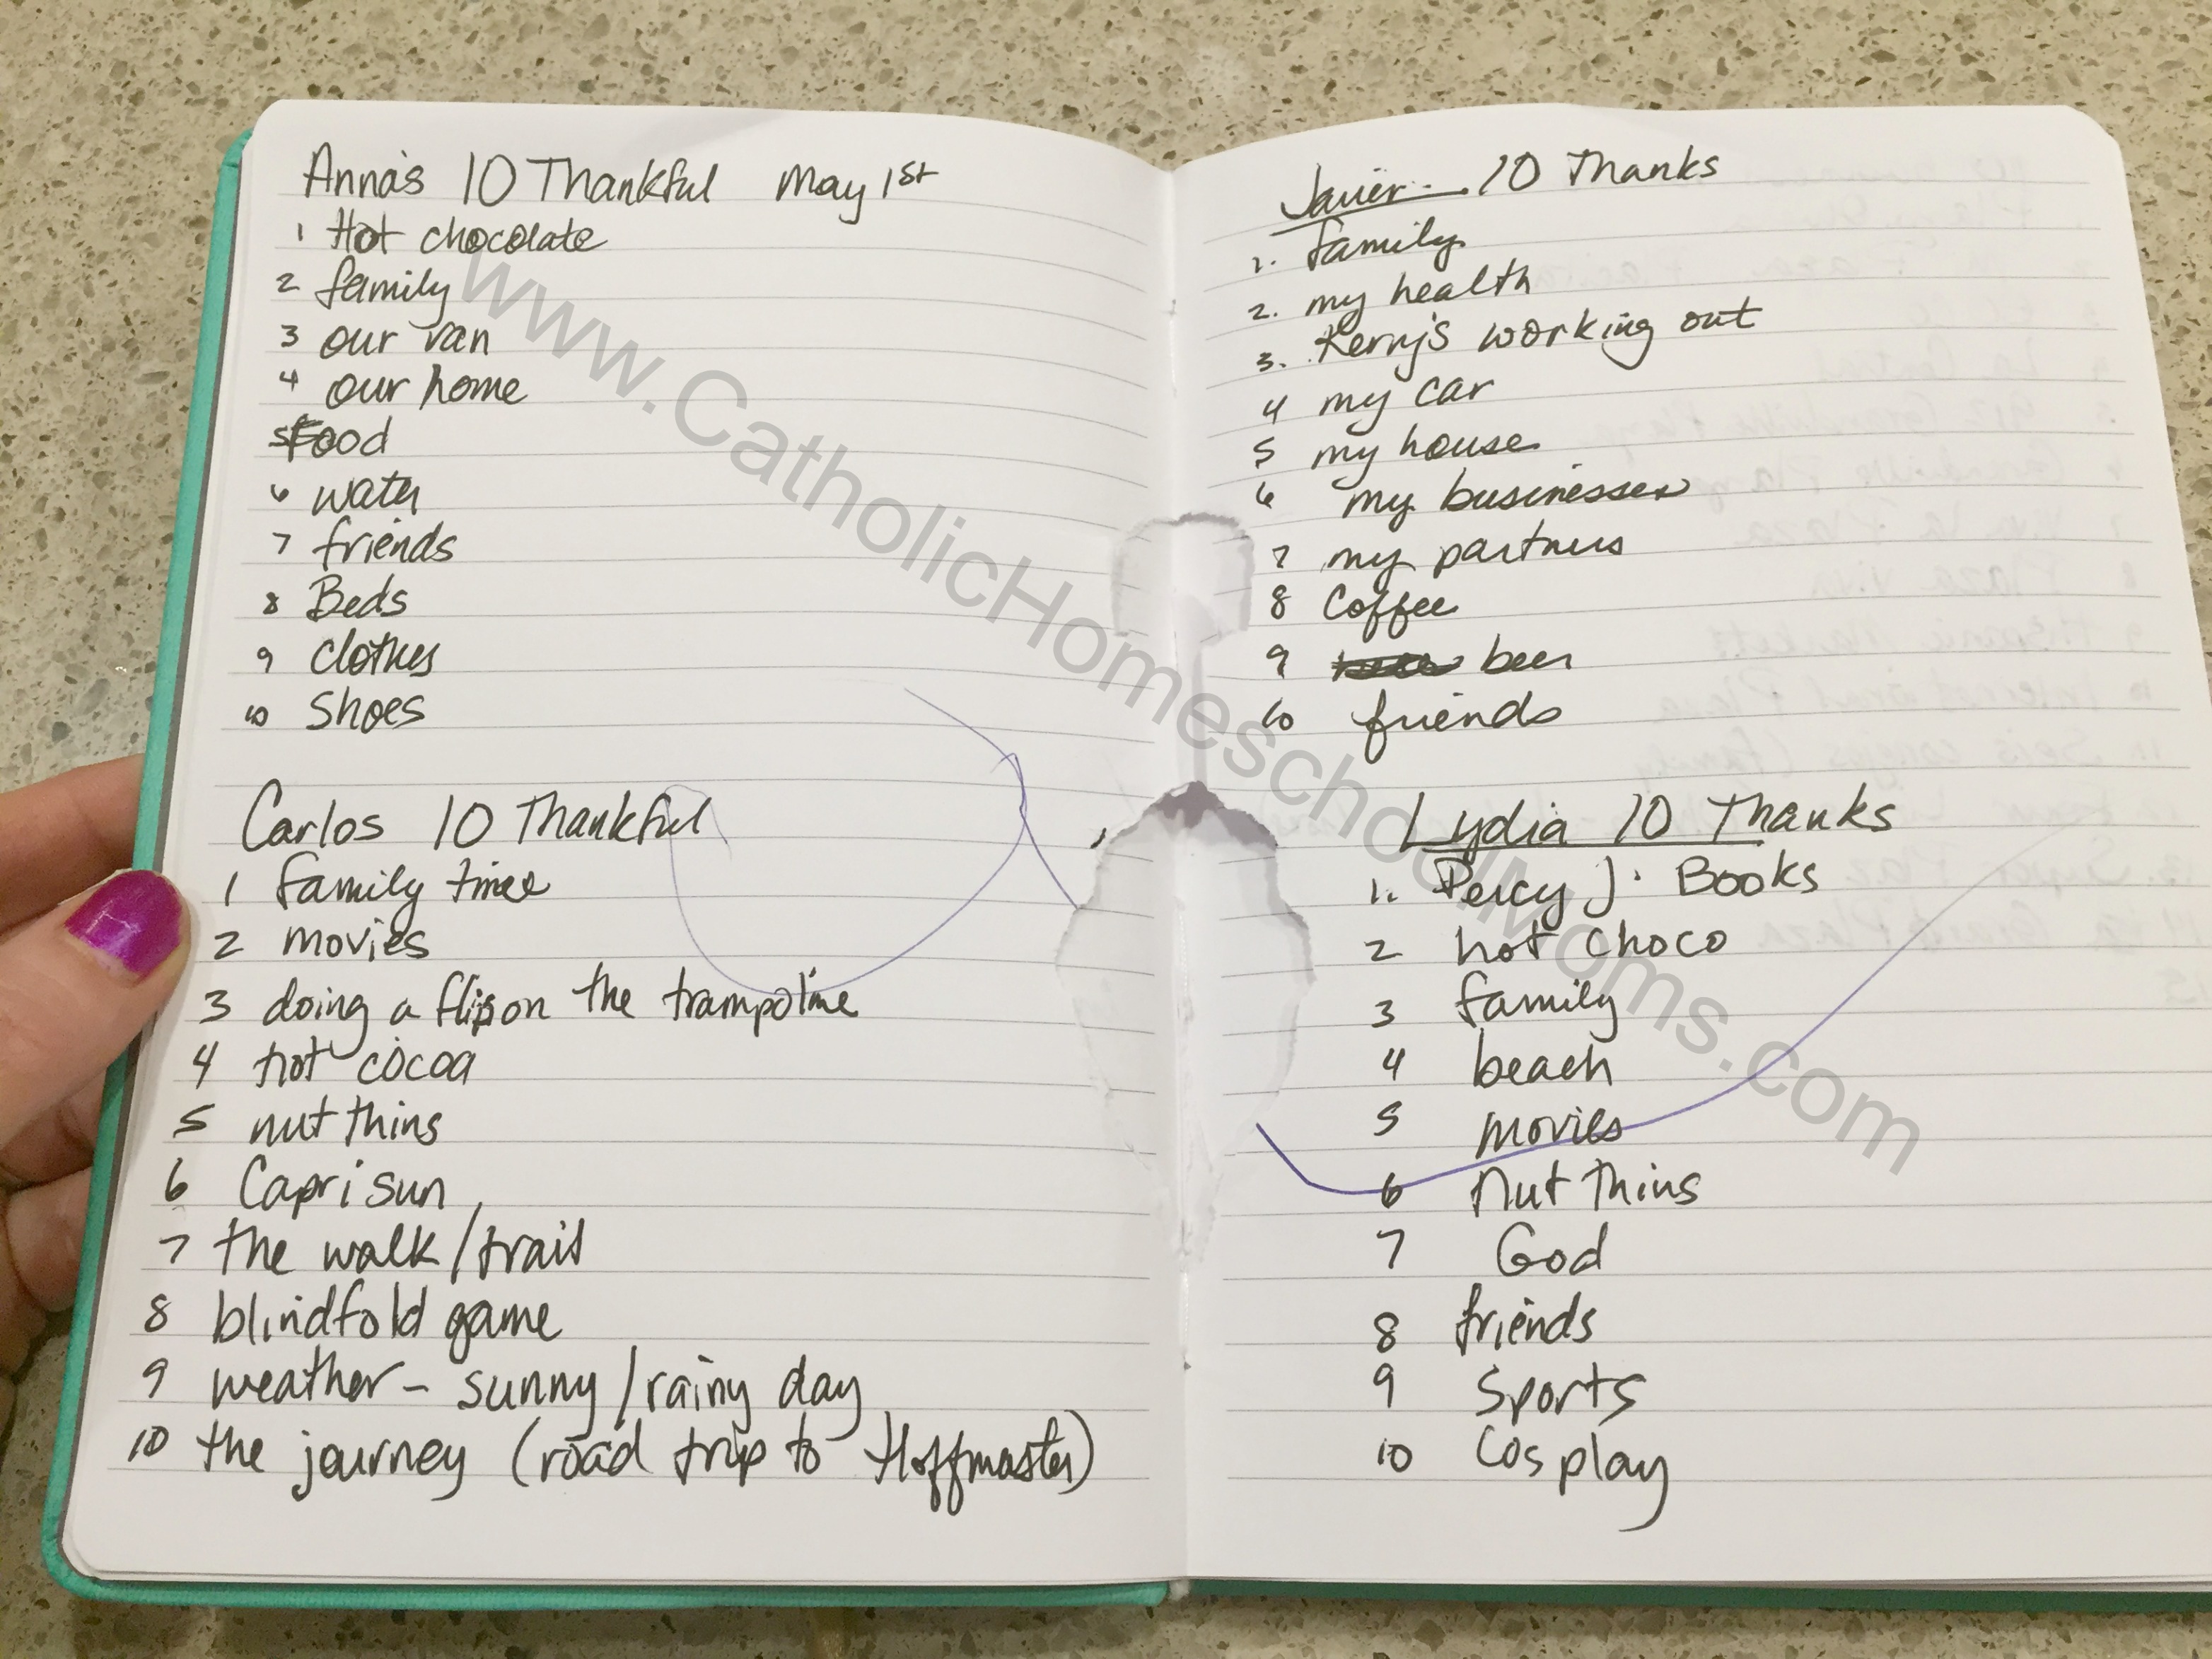 Anna's 10 Thankful May 1st
1 Hot chocolate
2 family
3 our van
4 our home
5 Food
6 water
7 friends
8 Beds
9 clothes
10 Shoes
Carlos 10 Thankful
1 family time
2 movies
3 doing a flip on the trampoline
4 hot cocoa
5 nut thins
6 Capri sun
7 the walk/trail
8 blindfold game
9 weather - sunny/rainy day
10 the journey (road trip to Hoffmaster)
Javier - 10 Thanks
1. family
2. my health
3. Kerry's working out
4 my car
5 my house
6 my businesses
7 my partners
8 Coffee
9 beer
10 friends
Lydia 10 Thanks
1. Percy J. Books
2 hot choco
3 family
4 beach
5 movies
6 Nut Thins
7 God
8 friends
9 Sports
10 Cosplay
www.CatholicHomeschoolMoms.com